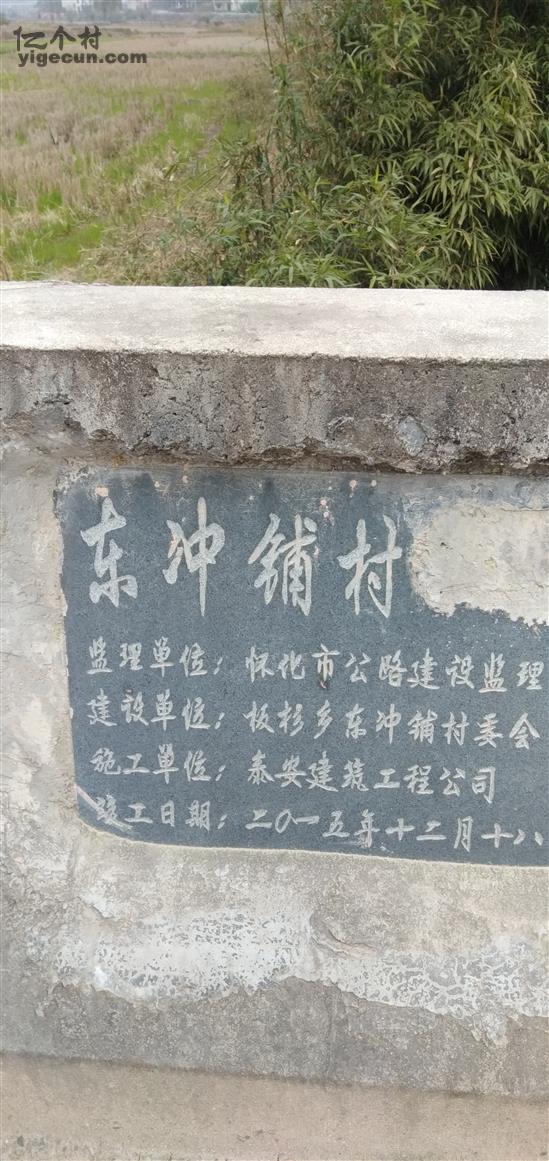 亿个村
yigecun.com
东冲铺村
监理单位：怀化市公路建设监理
建设单位：板杉乡东冲铺村委会
施工单位：泰安建筑工程公司
竣工日期：二〇一五年十二月十八